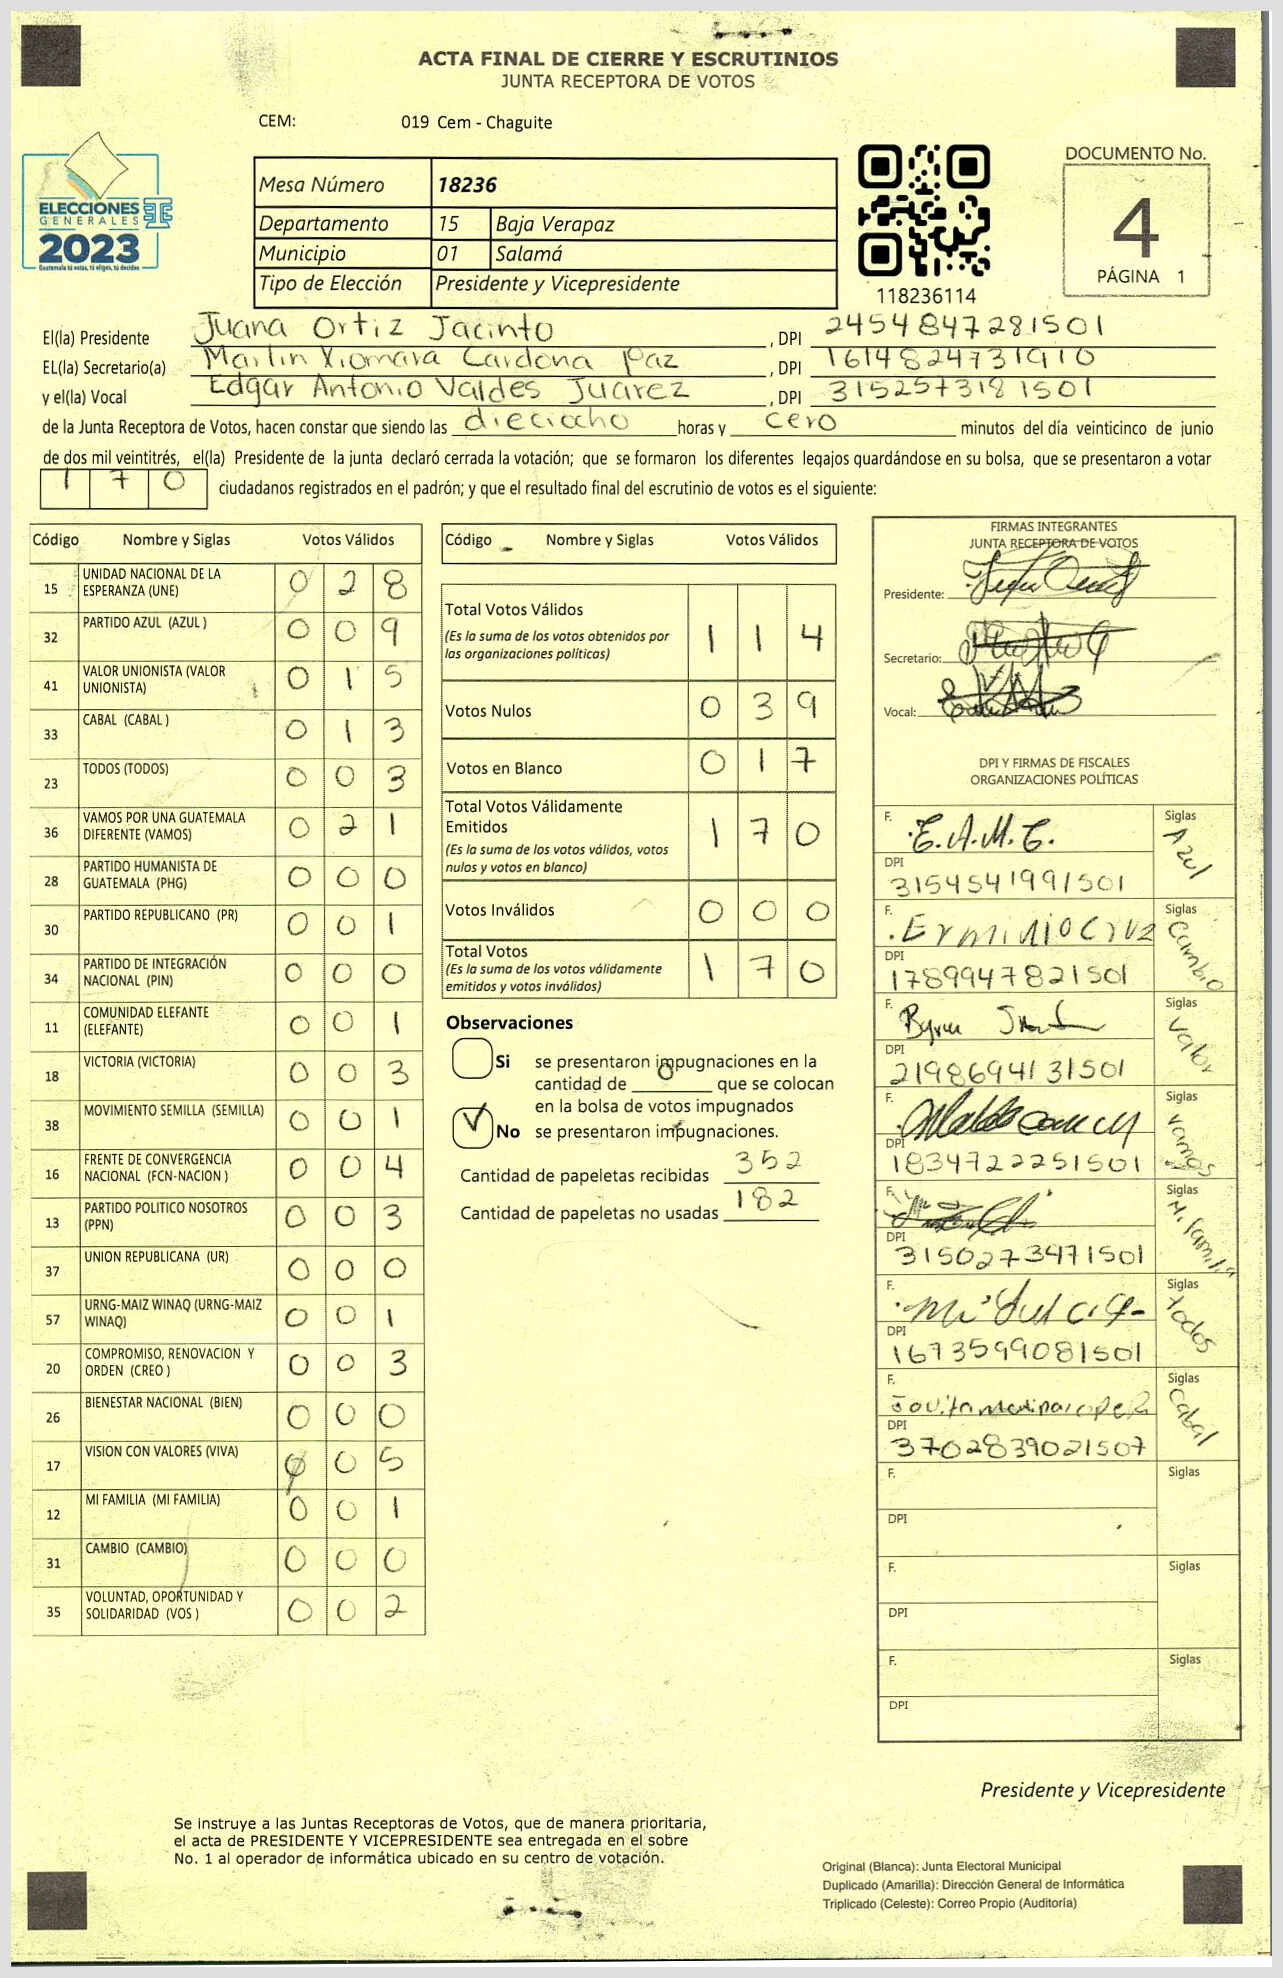 ACTA FINAL DE CIERRE Y ESCRUTINIOS
JUNTA RECEPTORA DE VOTOS
CEM: 019 Cem - Chaguite
ELECCIONES
GENERALES
2023
Guatemala tú votas, tú eliges, tú decides
Mesa Número 18236
Departamento 15 Baja Verapaz
Municipio 01 Salamá
Tipo de Elección Presidente y Vicepresidente
118236114
DOCUMENTO No.
4
PÁGINA 1
El(la) Presidente Juana Ortiz Jacinto , DPI 2454847281501
EL(la) Secretario(a) Marlin Xiomara Cardona Paz , DPI 1614824731910
y el(la) Vocal Edgar Antonio Valdes Juarez , DPI 3152573181501
de la Junta Receptora de Votos, hacen constar que siendo las dieciocho horas y cero minutos del día veinticinco de junio
de dos mil veintitrés, el(la) Presidente de la junta declaró cerrada la votación; que se formaron los diferentes legajos guardándose en su bolsa, que se presentaron a votar
170 ciudadanos registrados en el padrón; y que el resultado final del escrutinio de votos es el siguiente:
Código Nombre y Siglas Votos Válidos
15 UNIDAD NACIONAL DE LA ESPERANZA (UNE) 0 2 8
32 PARTIDO AZUL (AZUL ) 0 0 9
41 VALOR UNIONISTA (VALOR UNIONISTA) 0 1 5
33 CABAL (CABAL ) 0 1 3
23 TODOS (TODOS) 0 0 3
36 VAMOS POR UNA GUATEMALA DIFERENTE (VAMOS) 0 2 1
28 PARTIDO HUMANISTA DE GUATEMALA (PHG) 0 0 0
30 PARTIDO REPUBLICANO (PR) 0 0 1
34 PARTIDO DE INTEGRACIÓN NACIONAL (PIN) 0 0 0
11 COMUNIDAD ELEFANTE (ELEFANTE) 0 0 1
18 VICTORIA (VICTORIA) 0 0 3
38 MOVIMIENTO SEMILLA (SEMILLA) 0 0 1
16 FRENTE DE CONVERGENCIA NACIONAL (FCN-NACION ) 0 0 4
13 PARTIDO POLITICO NOSOTROS (PPN) 0 0 3
37 UNION REPUBLICANA (UR) 0 0 0
57 URNG-MAIZ WINAQ (URNG-MAIZ WINAQ) 0 0 1
20 COMPROMISO, RENOVACION Y ORDEN (CREO ) 0 0 3
26 BIENESTAR NACIONAL (BIEN) 0 0 0
17 VISION CON VALORES (VIVA) 0 0 5
12 MI FAMILIA (MI FAMILIA) 0 0 1
31 CAMBIO (CAMBIO) 0 0 0
35 VOLUNTAD, OPORTUNIDAD Y SOLIDARIDAD (VOS ) 0 0 2
Código Nombre y Siglas Votos Válidos
Total Votos Válidos 1 1 4
(Es la suma de los votos obtenidos por
las organizaciones políticas)
Votos Nulos 0 3 9
Votos en Blanco 0 1 7
Total Votos Válidamente
Emitidos 1 7 0
(Es la suma de los votos válidos, votos
nulos y votos en blanco)
Votos Inválidos 0 0 0
Total Votos 1 7 0
(Es la suma de los votos válidamente
emitidos y votos inválidos)
Observaciones
Si se presentaron impugnaciones en la
cantidad de 0 que se colocan
en la bolsa de votos impugnados
No se presentaron impugnaciones.
Cantidad de papeletas recibidas 352
Cantidad de papeletas no usadas 182
FIRMAS INTEGRANTES
JUNTA RECEPTORA DE VOTOS
Presidente:
Secretario:
Vocal:
DPI Y FIRMAS DE FISCALES
ORGANIZACIONES POLÍTICAS
F. E.A.M.E. Siglas Azul
DPI 3154541991501
F. Erminio Cruz Siglas Cambio
DPI 1789947821501
F. Byron Siglas Valor
DPI 2198694131501
F. Siglas Vamos
DPI 1834722251501
F. Siglas Mi familia
DPI 3150273471501
F. Siglas todos
DPI 1673599081501
F. Siglas Cabal
DPI 3702839021507
F. Siglas
DPI
F. Siglas
DPI
F. Siglas
DPI
Presidente y Vicepresidente
Se instruye a las Juntas Receptoras de Votos, que de manera prioritaria,
el acta de PRESIDENTE Y VICEPRESIDENTE sea entregada en el sobre
No. 1 al operador de informática ubicado en su centro de votación.
Original (Blanca): Junta Electoral Municipal
Duplicado (Amarilla): Dirección General de Informática
Triplicado (Celeste): Correo Propio (Auditoría)